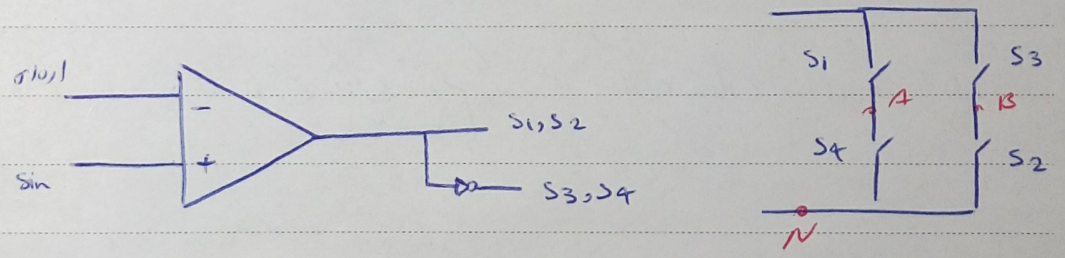 -
+
Sin
S1, S2
S3, S4
S1
S3
A
B
S4
S2
N